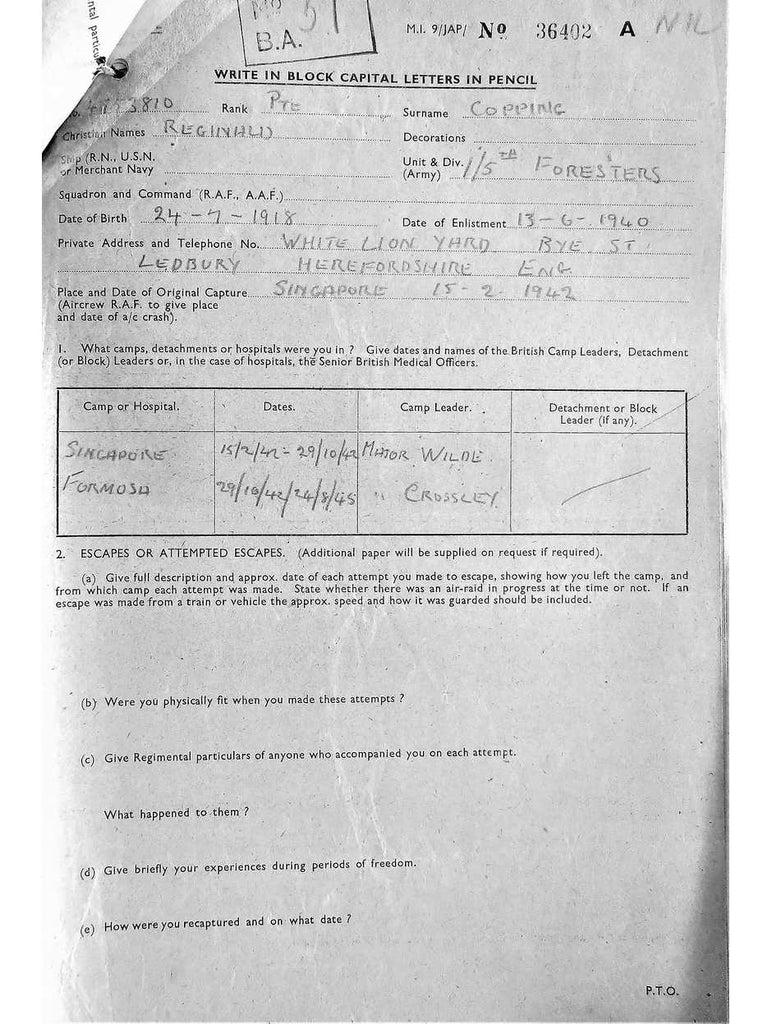 ntal particul
B.A.
M.I. 9/JAP/ No 36402 A NIL
WRITE IN BLOCK CAPITAL LETTERS IN PENCIL
3810 Rank PTE Surname COPPING
Christian Names REGINALD Decorations
Ship (R.N., U.S.N. or Merchant Navy
Unit & Div. (Army) 1/5TH FORESTERS
Squadron and Command (R.A.F., A.A.F.)
Date of Birth 24-7-1918 Date of Enlistment 13-6-1940
Private Address and Telephone No. WHITE LION YARD BYE ST
LEDBURY HEREFORDSHIRE ENG
Place and Date of Original Capture SINGAPORE 15-2-1942
(Aircrew R.A.F. to give place
and date of a/c crash).
1. What camps, detachments or hospitals were you in ? Give dates and names of the British Camp Leaders, Detachment
(or Block) Leaders or, in the case of hospitals, the Senior British Medical Officers.
Camp or Hospital. Dates. Camp Leader. Detachment or Block Leader (if any).
SINGAPORE 15/2/42-29/10/42 MAJOR WILDE
FORMOSA 29/10/42/24/8/45 " CROSSLEY
2. ESCAPES OR ATTEMPTED ESCAPES. (Additional paper will be supplied on request if required).
(a) Give full description and approx. date of each attempt you made to escape, showing how you left the camp, and
from which camp each attempt was made. State whether there was an air-raid in progress at the time or not. If an
escape was made from a train or vehicle the approx. speed and how it was guarded should be included.
(b) Were you physically fit when you made these attempts ?
(c) Give Regimental particulars of anyone who accompanied you on each attempt.
What happened to them ?
(d) Give briefly your experiences during periods of freedom.
(e) How were you recaptured and on what date ?
P.T.O.